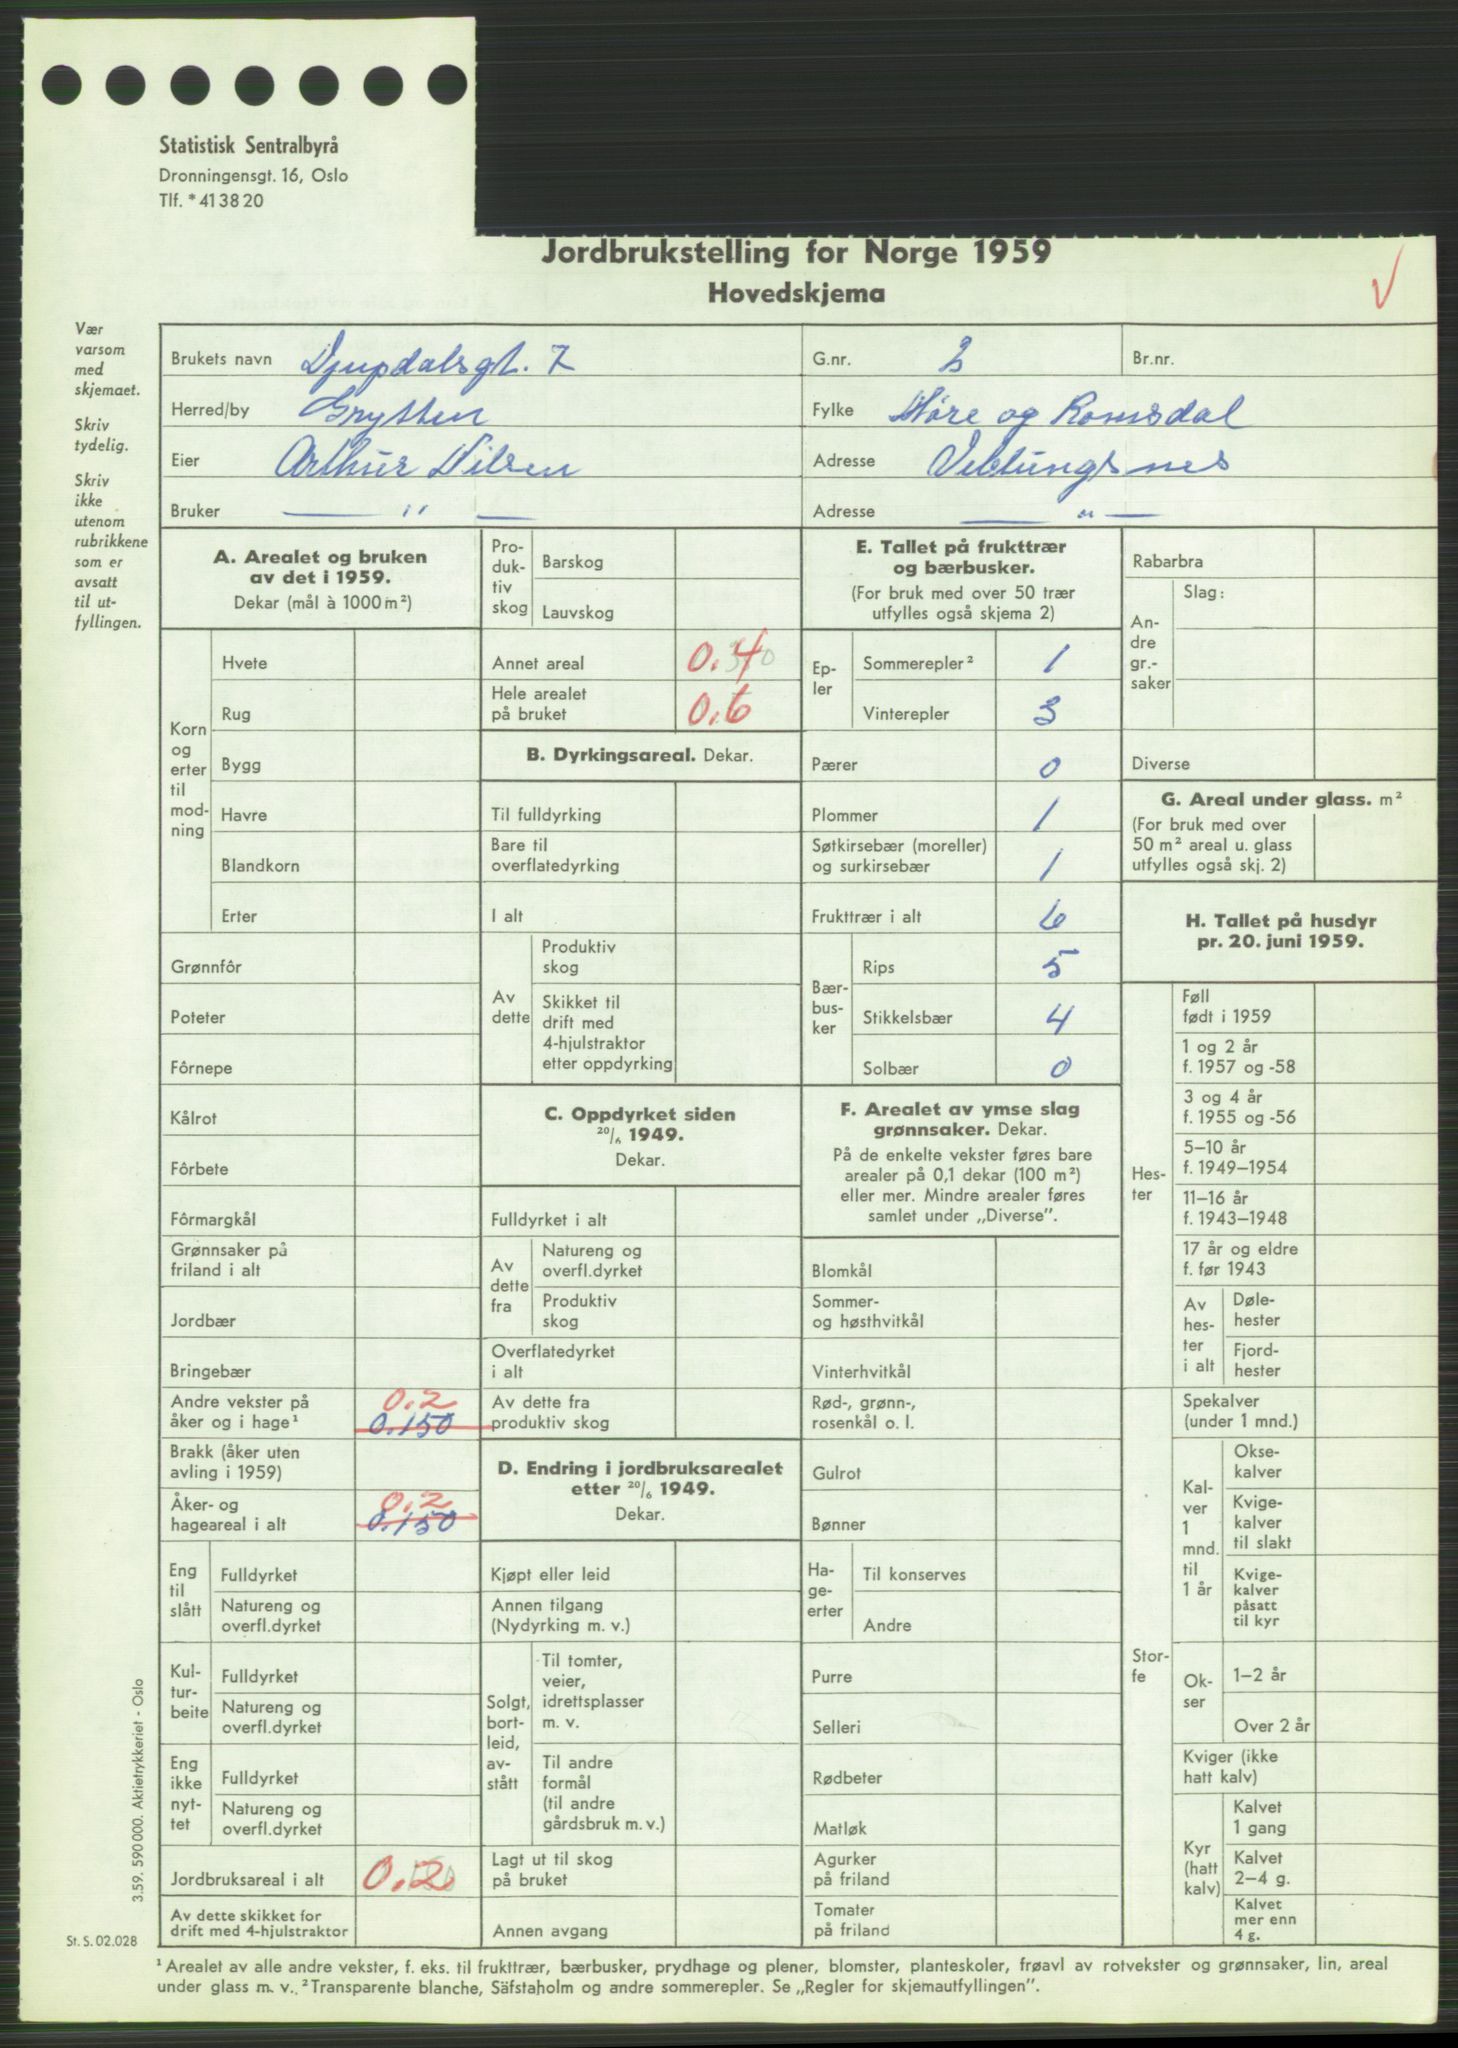 Statistisk Sentralbyrå
Dronningensgt. 16, Oslo
Tlf. *41 38 20
Jordbrukstelling for Norge 1959
Hovedskjema
Vær
varsom
med
skjemaet.
Skriv
tydelig.
Skriv
ikke
utenom
rubrikkene
som er
avsatt
til ut-
fyllingen.
Brukets navn Djupdalsgt. 7 G.nr. 3 Br.nr.
Herred/by Grytten Fylke Møre og Romsdal
Eier Arthur Nilsen Adresse Veblungsnes
Bruker — " — Adresse — " —
A. Arealet og bruken
av det i 1959.
Dekar (mål à 1000 m²)
Korn
og
erter
til
mod-
ning
Hvete
Rug
Bygg
Havre
Blandkorn
Erter
Grønnfôr
Poteter
Fôrnepe
Kålrot
Fôrbete
Fôrmargkål
Grønnsaker på
friland i alt
Jordbær
Bringebær
Andre vekster på 0.2
åker og i hage¹ 0.150
Brakk (åker uten
avling i 1959)
Åker- og 0.2
hageareal i alt 0.150
Eng
til
slått
Fulldyrket
Natureng og
overfl.dyrket
Kul-
tur-
beite
Fulldyrket
Natureng og
overfl.dyrket
Eng
ikke
nyt-
tet
Fulldyrket
Natureng og
overfl.dyrket
Jordbruksareal i alt 0.2
Av dette skikket for
drift med 4-hjulstraktor
Pro-
duk-
tiv
skog
Barskog
Lauvskog
Annet areal 0.4
Hele arealet
på bruket 0.6
B. Dyrkingsareal. Dekar.
Til fulldyrking
Bare til
overflatedyrking
I alt
Av
dette
Produktiv
skog
Skikket til
drift med
4-hjulstraktor
etter oppdyrking
C. Oppdyrket siden
20/6 1949.
Dekar.
Fulldyrket i alt
Av
dette
fra
Natureng og
overfl.dyrket
Produktiv
skog
Overflatedyrket
i alt
Av dette fra
produktiv skog
D. Endring i jordbruksarealet
etter 20/6 1949.
Dekar.
Kjøpt eller leid
Annen tilgang
(Nydyrking m. v.)
Solgt,
bort-
leid,
av-
stått
Til tomter,
veier,
idrettsplasser
m. v.
Til andre
formål
(til andre
gårdsbruk m. v.)
Lagt ut til skog
på bruket
Annen avgang
E. Tallet på frukttrær
og bærbusker.
(For bruk med over 50 trær
utfylles også skjema 2)
Ep-
ler
Sommerepler² 1
Vinterepler 3
Pærer 0
Plommer 1
Søtkirsebær (moreller)
og surkirsebær 1
Frukttrær i alt 6
Bær-
bus-
ker
Rips 5
Stikkelsbær 4
Solbær 0
F. Arealet av ymse slag
grønnsaker. Dekar.
På de enkelte vekster føres bare
arealer på 0,1 dekar (100 m²)
eller mer. Mindre arealer føres
samlet under „Diverse”.
Blomkål
Sommer-
og høsthvitkål
Vinterhvitkål
Rød-, grønn-,
rosenkål o. l.
Gulrot
Bønner
Ha-
ge-
erter
Til konserves
Andre
Purre
Selleri
Rødbeter
Matløk
Agurker
på friland
Tomater
på friland
Rabarbra
An-
dre
gr.-
saker
Slag:
Diverse
G. Areal under glass. m²
(For bruk med over
50 m² areal u. glass
utfylles også skj. 2)
H. Tallet på husdyr
pr. 20. juni 1959.
Hes-
ter
Føll
født i 1959
1 og 2 år
f. 1957 og -58
3 og 4 år
f. 1955 og -56
5–10 år
f. 1949–1954
11–16 år
f. 1943–1948
17 år og eldre
f. før 1943
Av
hes-
ter
i alt
Døle-
hester
Fjord-
hester
Stor-
fe
Spekalver
(under 1 mnd.)
Kal-
ver
1
mnd.
til
1 år
Okse-
kalver
Kvige-
kalver
til slakt
Kvige-
kalver
påsatt
til kyr
Ok-
ser
1–2 år
Over 2 år
Kviger (ikke
hatt kalv)
Kyr
(hatt
kalv)
Kalvet
1 gang
Kalvet
2–4 g.
Kalvet
mer enn
4 g.
3.59. 590 000. Aktietrykkeriet - Oslo
St. S. 02.028
¹ Arealet av alle andre vekster, f. eks. til frukttrær, bærbusker, prydhage og plener, blomster, planteskoler, frøavl av rotvekster og grønnsaker, lin, areal
under glass m. v. ² Transparente blanche, Säfstaholm og andre sommerepler. Se „Regler for skjemautfyllingen”.